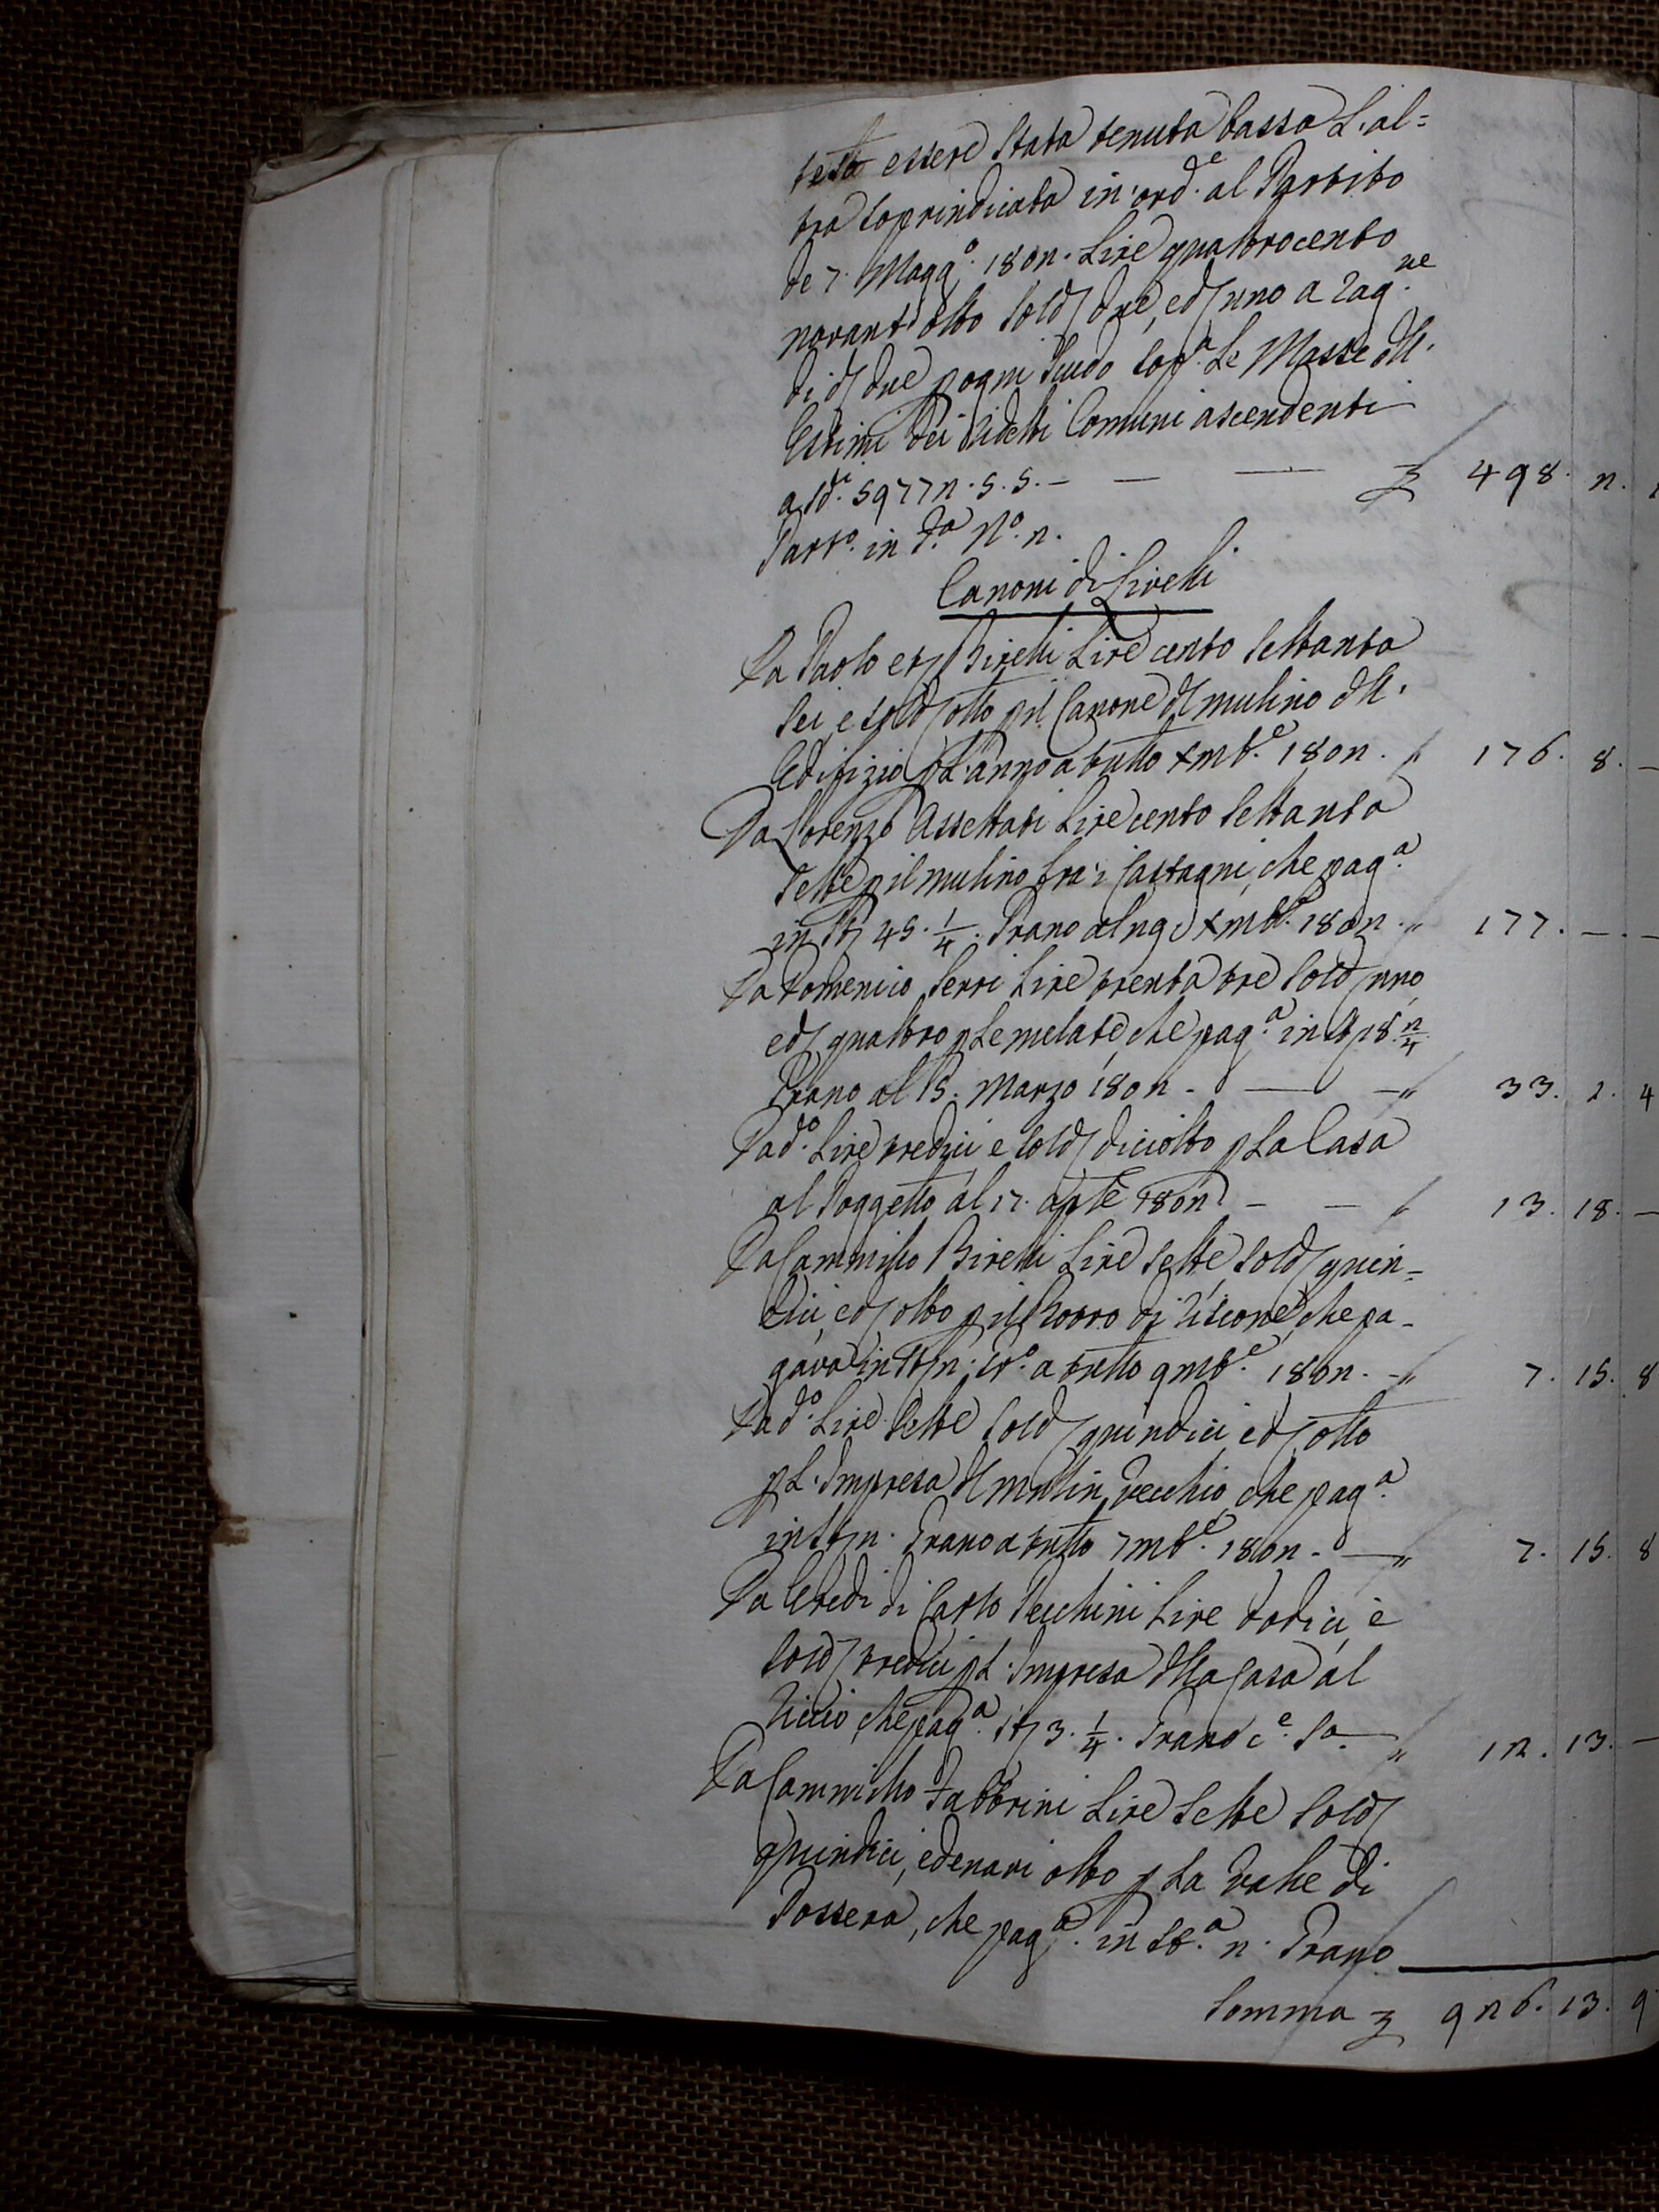 essere stata tenuta bassa l'al=
tra soprindicata in ord.e al Partito
de 7. Magg.o 1802. Lire quattrocento
novant'otto sold due, ed uno a rag.ne
di d due p ogni scudo sop.a le Masse dll'
Estimi dei Comuni ascendenti
a sd.i 59772. 5. 5. — — — £ 498. 2. 1
in F.a N.o 2.
Canoni di Livelli
Da Paolo Birelli Lire cento settanta
sei, e sold otto p il Canone dl mulino dll'
Edifizio p l'anno a tutto Xmb.e 1802. " 176. 8. —
Da Lorenzo Assettati Lire cento settanta
sette p il mulino fra i Castagni, che pag.a
in St 45. 1/4. Grano al 29 Xmb.e 1802. " 177. — . —
Da Domenico Serri Lire trenta tre sold uno,
ed quattro p le melate, che pag.a in St 8. 2/4
Grano al 15. Marzo 1802 - — - " 33. 1. 4
Da d.o Lire tredici e sold diciotto p la Casa
al Poggetto al 17. aple 1802 - — " 13. 18. —
Da Cammillo Birelli Lire sette, sold quin=
dici, ed otto p il Borro di , che pa-
gava in St 2. a tutto 9mb.e 1802. - " 7. 15. 8
Da d.o Lire sette sold quindici, ed otto
p l'Impresa dl mulin vecchio, che pag.a
in St 2. Grano a tutto 7mb.e 1802 - — " 7. 15. 8
Da Eredi di Carlo Pecchini Lire dodici, e
sold tredici p l'Impresa dlla Casa al
, che pag.a St 3. 1/4. Grano c.e S.a — " 12. 13. —
Da Cammillo Fabbrini Lire sette sold
quindici, e denari otto p la Valle di
Possera, che pag.a in St.a 2. Grano
Somma £ 926. 13. 9